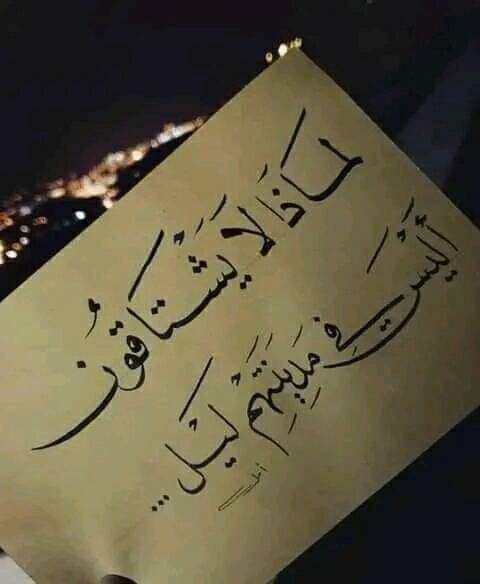 لماذا لا يَشتَاقُون
أَلَيْسَ في مَدِينَتِهِم لَيل...